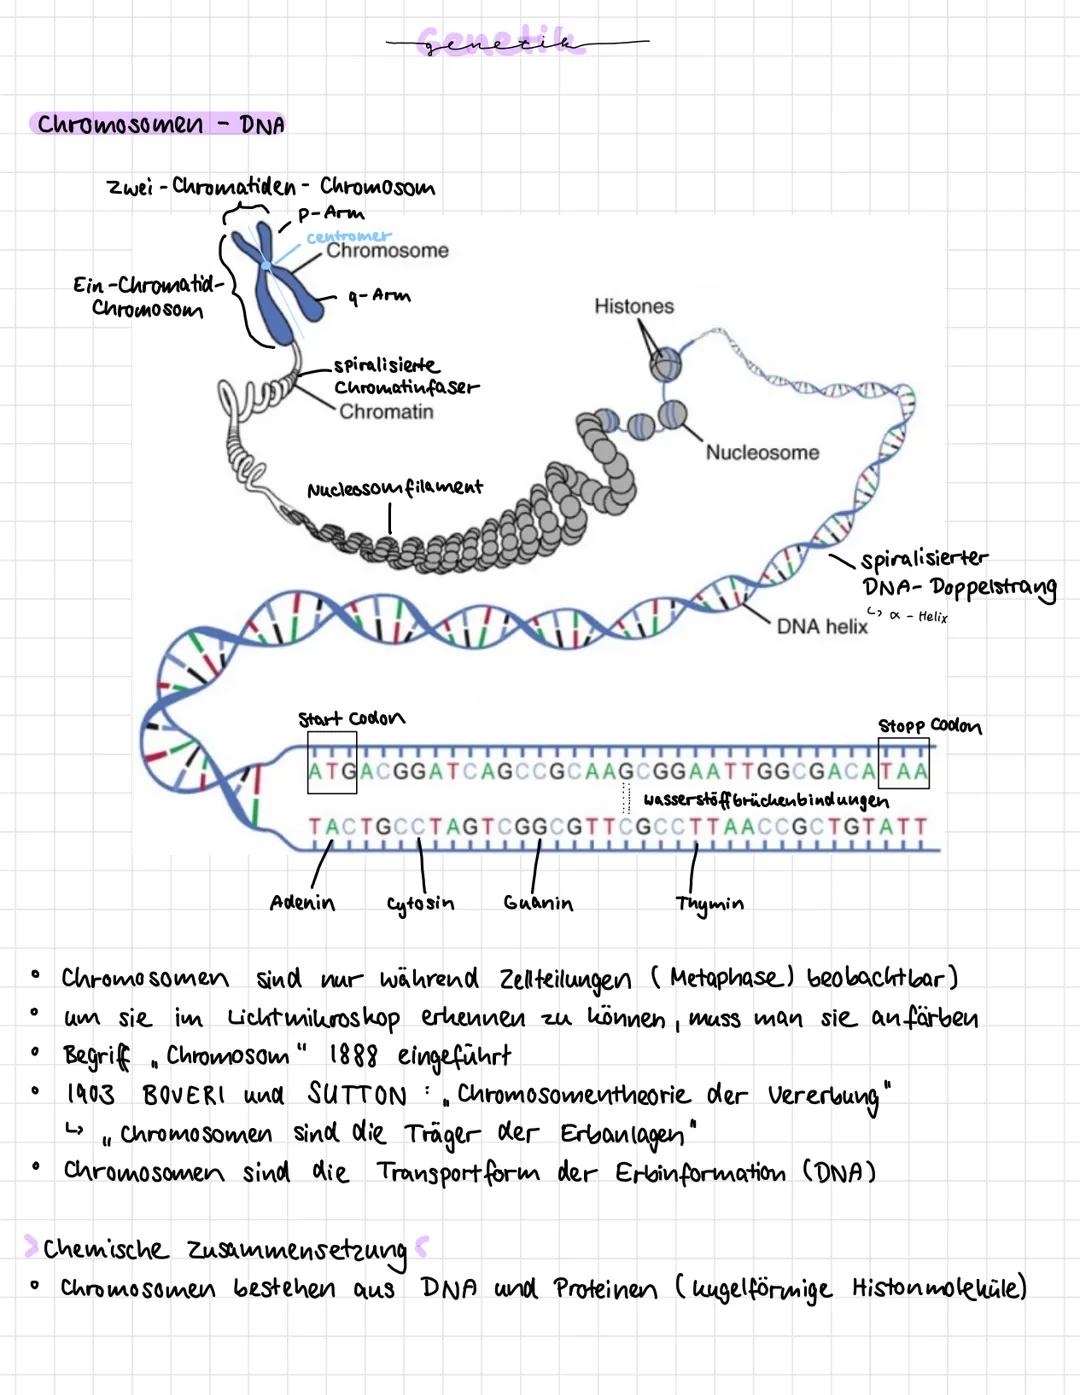 Genetik
genetik
Chromosomen - DNA
Zwei-Chromatiden-Chromosom
p-Arm
centromer
Chromosome
Ein-Chromatid-
Chromosom
q-Arm
Histones
spiralisierte
Chromatinfaser
Chromatin
Nucleosome
Nucleosomfilament
spiralisierter
DNA-Doppelstrang
↳ α-Helix
DNA helix
Start Codon
Stopp Codon
ATGACGGATCAGCCGCAAGCGGAATTGGCGACATAA
wasserstöffbrückenbindungen
TACTGCCTAGTCGGCGTTCGCCTTAACCGCTGTATT
Adenin
Cytosin
Guanin
Thymin
° Chromosomen sind nur während Zellteilungen (Metaphase) beobachtbar)
° um sie im Lichtmikroskop erkennen zu können, muss man sie anfärben
° Begriff „Chromosom" 1888 eingeführt
° 1903 BOVERI und SUTTON: „Chromosomentheorie der Vererbung"
↳ „Chromosomen sind die Träger der Erbanlagen"
° Chromosomen sind die Transportform der Erbinformation (DNA)
> Chemische Zusammensetzung <
° Chromosomen bestehen aus DNA und Proteinen (kugelförmige Histonmoleküle)